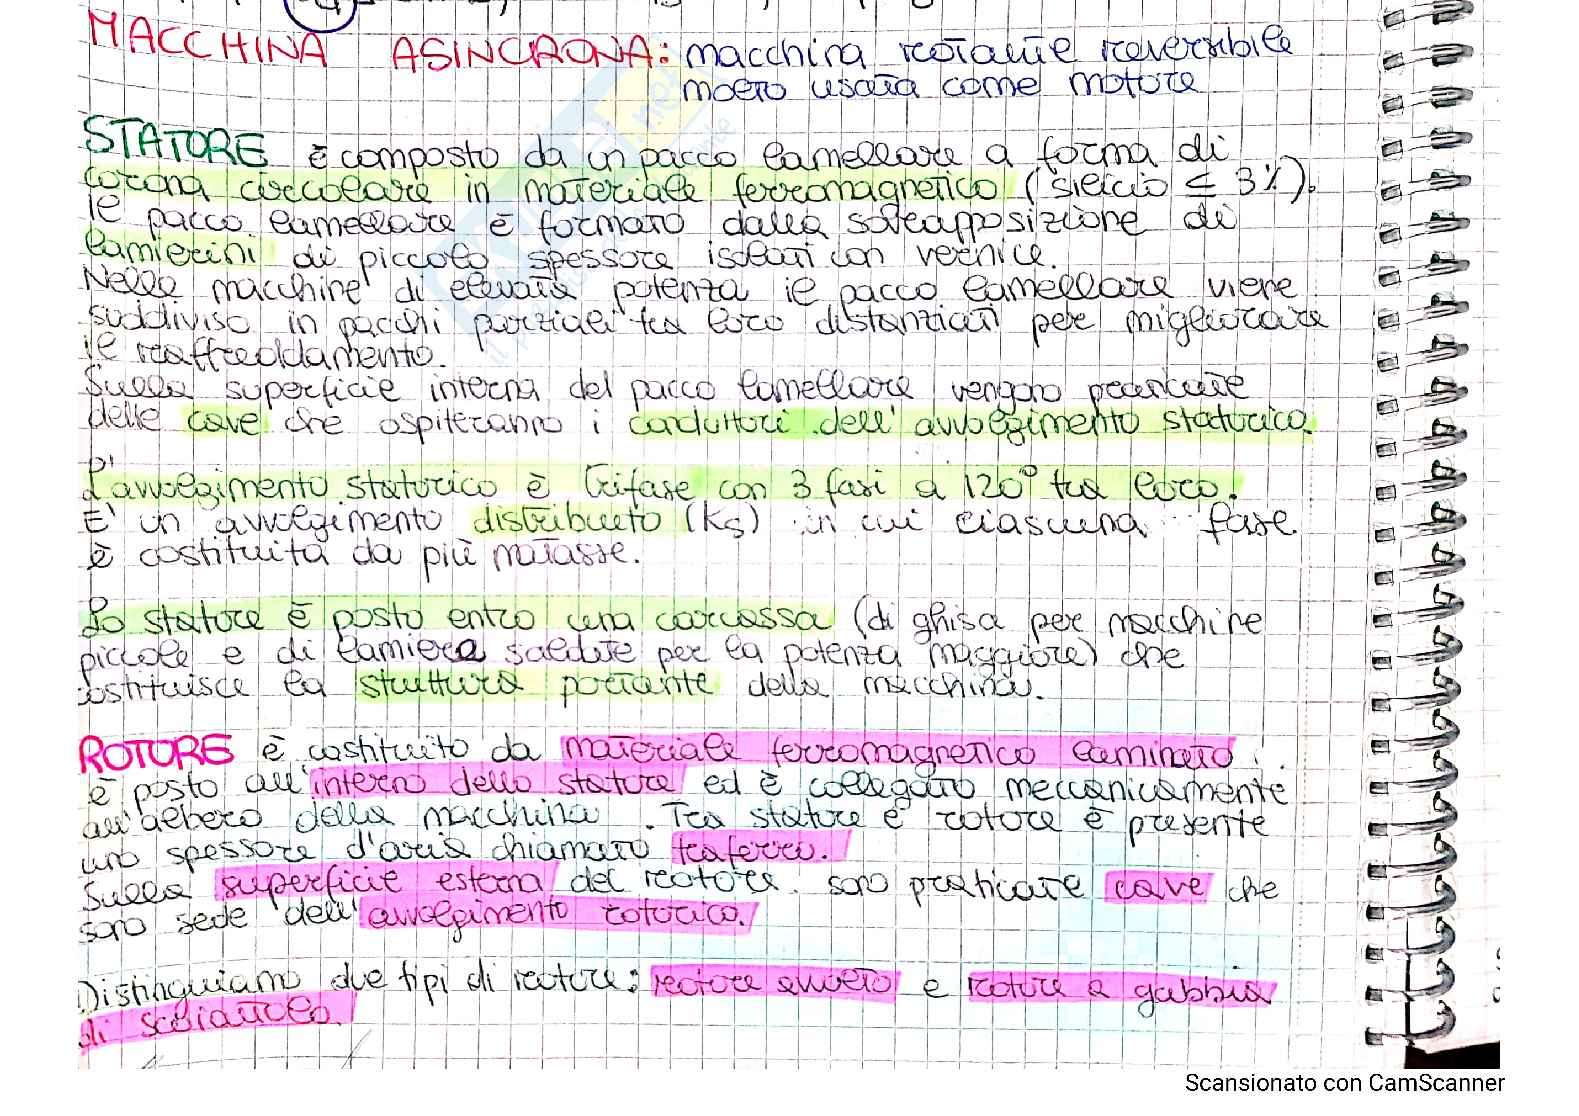 MACCHINA ASINCRONA: macchina rotante reversibile
molto usata come motore
STATORE è composto da un pacco lamellare a forma di
corona circolare in materiale ferromagnetico (silicio ≤ 3%).
Il pacco lamellare è formato dalla sovrapposizione di
lamierini di piccolo spessore isolati con vernice.
Nelle macchine di elevata potenza il pacco lamellare viene
suddiviso in pacchi parziali tra loro distanziati per migliorare
il raffreddamento.
Sulla superficie interna del pacco lamellare vengono praticate
delle cave che ospiteranno i conduttori dell'avvolgimento statorico.
L'avvolgimento statorico è trifase con 3 fasi a 120° tra loro.
E' un avvolgimento distribuito (Ks) in cui ciascuna fase
è costituita da più matasse.
Lo statore è posto entro una carcassa (di ghisa per macchine
piccole e di lamiera saldate per la potenza maggiore) che
costituisce la struttura portante della macchina.
ROTORE è costituito da materiale ferromagnetico laminato.
è posto all'interno dello statore ed è collegato meccanicamente
all'albero della macchina. Tra statore e rotore è presente
uno spessore d'aria chiamato traferro.
Sulla superficie esterna del rotore sono praticate cave che
sono sede dell'avvolgimento rotorico.
Distinguiamo due tipi di rotore: rotore avvolto e rotore a gabbia
di scoiattolo.
Scansionato con CamScanner